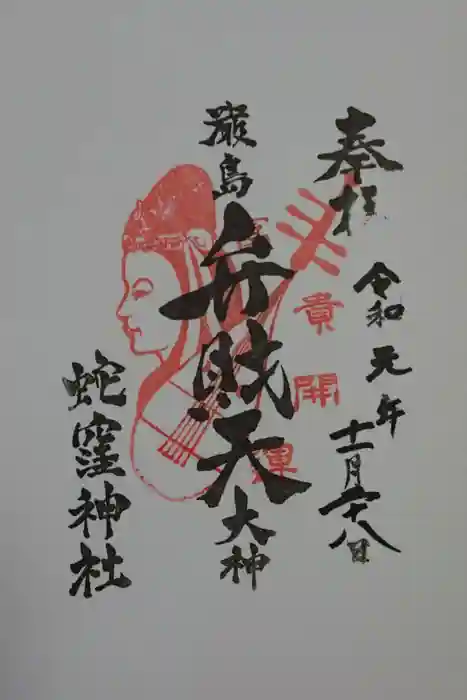 奉拝
令和元年
十一月廿八日
嚴島
弁財天
大神
蛇窪神社
富貴開運